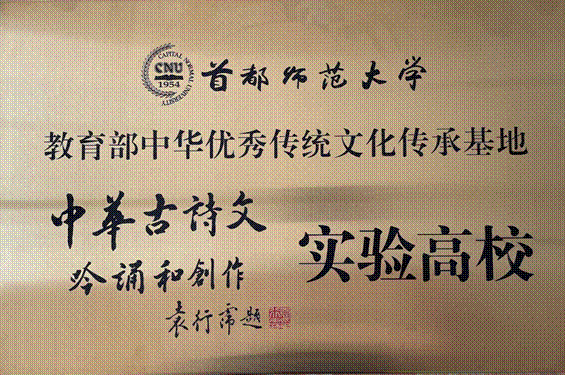 CAPITAL NORMAL UNIVERSITY
CNU
1954
首都师范大学
教育部中华优秀传统文化传承基地
中華古詩文
吟誦和創作
实验高校
袁行霈题